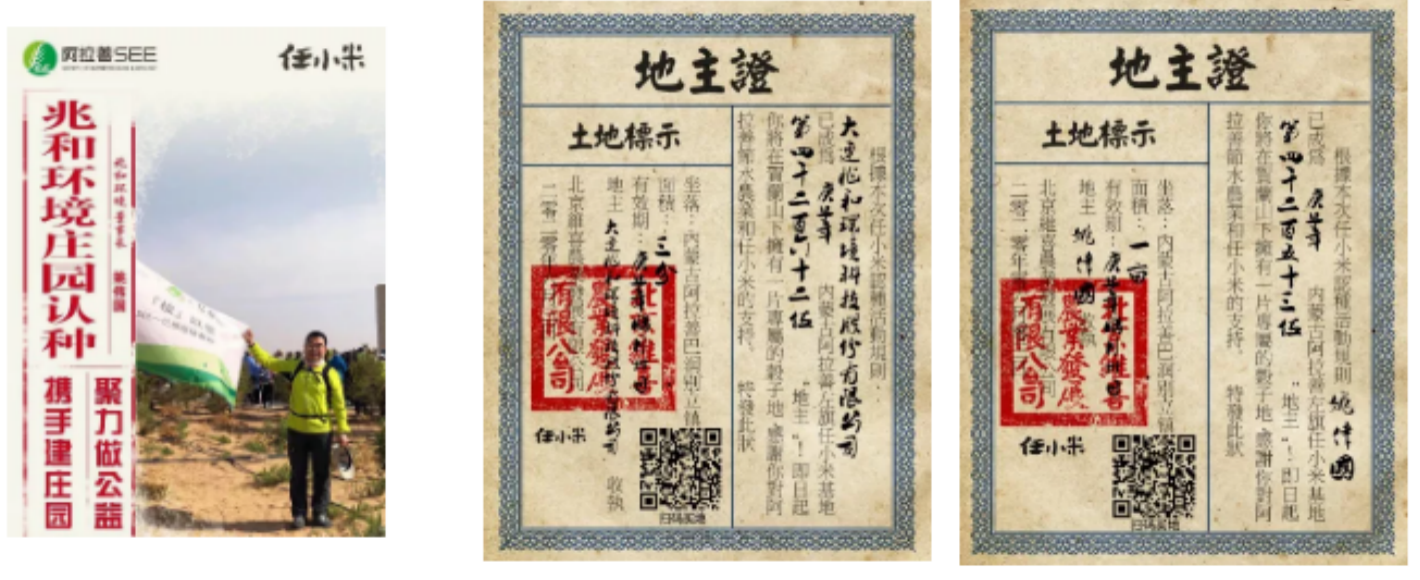 阿拉善SEE
任小米
兆和环境庄园认种
兆和环境 董事长 姚伟国
聚力做公益
携手建庄园
地主證
根據本次任小米認種活動規則，
大連兆和環境科技股份有限公司
已成爲 庚子年 内蒙古阿拉善左旗任小米基地
第四千二百六十二位 “地主”！即日起
你將在賀蘭山下擁有一片專屬的穀子地，感謝你對阿
拉善節水農業和任小米的支持。 特發此狀
土地標示
坐落：内蒙古阿拉善巴潤别立镇
面積：三分
有效期：
地主 大連兆和環境科技股份有限公司 收執
有限公司
任小米
扫码实地
地主證
根據本次任小米認種活動規則 姚偉國
已成爲 庚子年 内蒙古阿拉善左旗任小米基地
第四千二百五十三位 “地主”！即日起
你將在賀蘭山下擁有一片專屬的穀子地，感謝你對阿
拉善節水農業和任小米的支持。 特發此狀
土地標示
坐落：内蒙古阿拉善巴潤别立镇
面積：一亩
有效期：
地主 姚偉國
有限公司
任小米
扫码实地